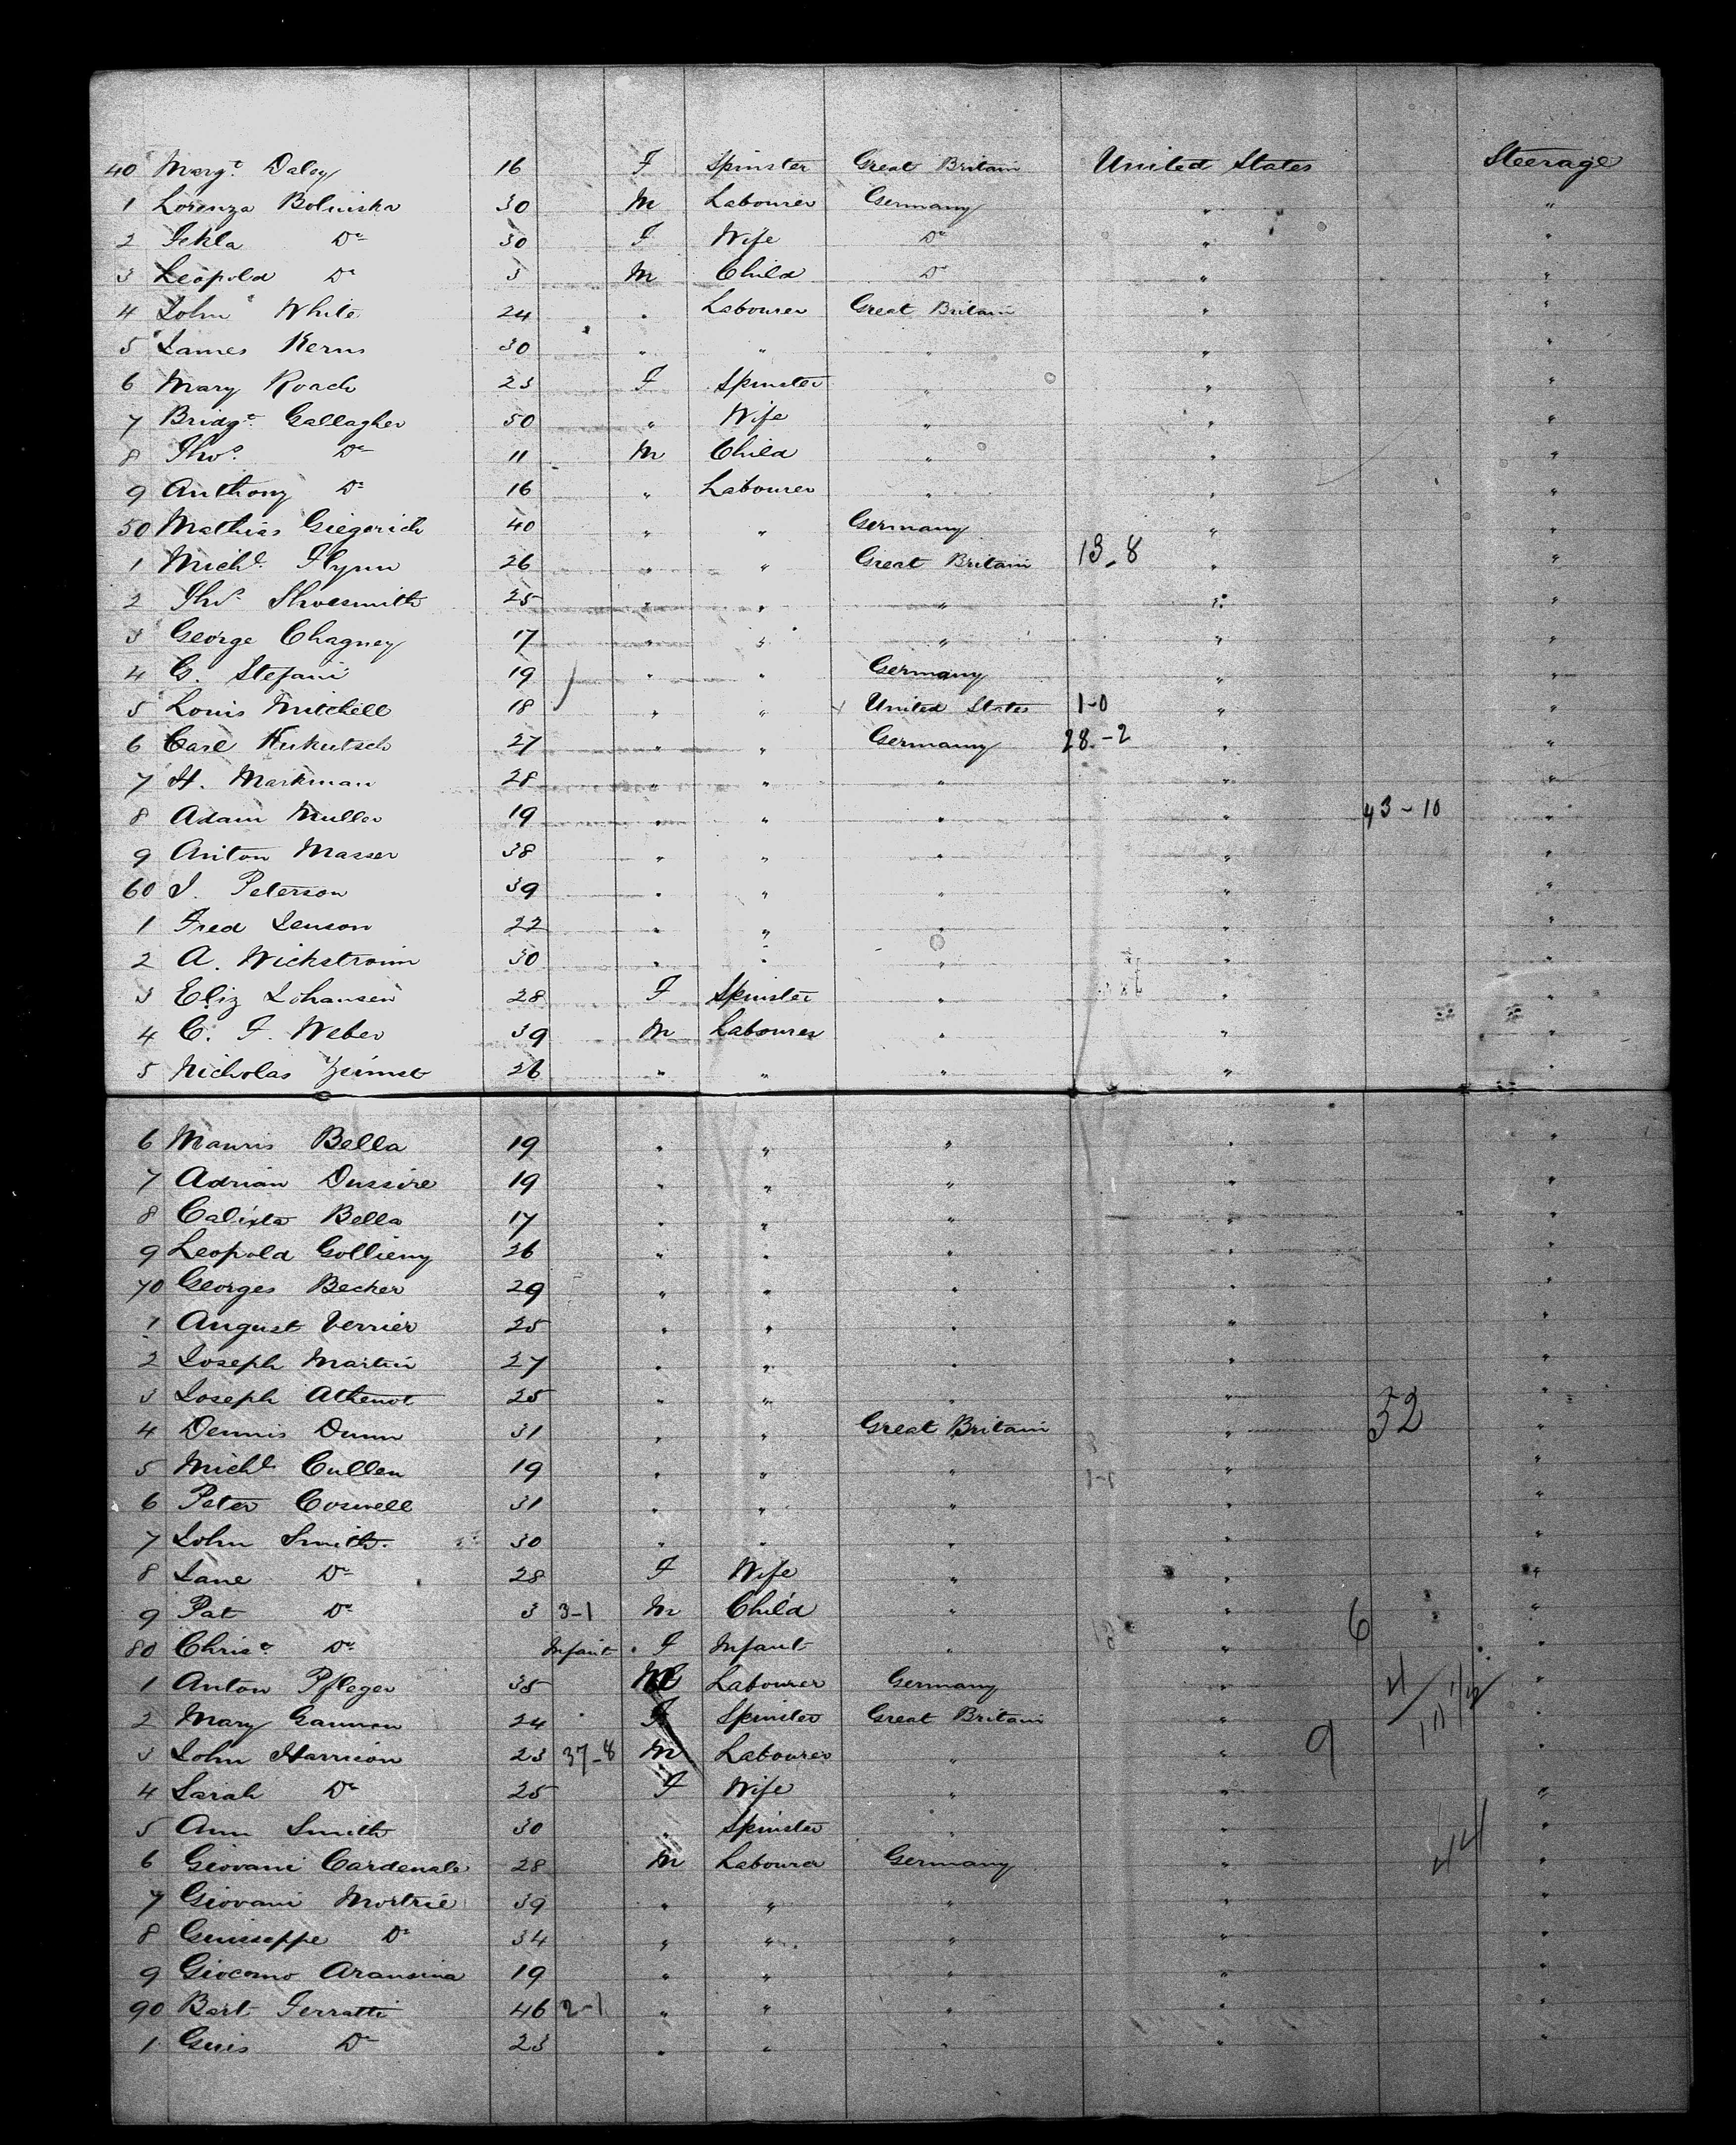 40 Margt. Daley 16 F Spinster Great Britain United States Steerage
1 Lorenza Bolinska 30 M Labourer Germany " "
2 Tekla Do 30 F Wife Do " "
3 Leopold Do 3 M Child Do " "
4 John White 24 " Labourer Great Britain " "
5 James Kerns 30 " " " " "
6 Mary Roach 23 F Spinster " " "
7 Bridgt. Gallagher 50 " Wife " " "
8 Thos. Do 11 M Child " " "
9 Anthony Do 16 " Labourer " " "
50 Mathias Giegerich 40 " " Germany " "
1 Michl. Flynn 26 " " Great Britain 13-8 " "
2 Thos. Shoesmith 25 " " " " "
3 George Chagney 17 " " " " "
4 G. Stefani 19 " " Germany " "
5 Louis Mitchell 18 " " United States 1-0 " "
6 Carl Kukutsch 27 " " Germany 28-2 " "
7 H. Markman 28 " " " " "
8 Adam Muller 19 " " " " 43-10 "
9 Anton Masser 38 " " " " "
60 J. Peterson 39 " " " " "
1 Fred Jenson 22 " " " " "
2 A. Wickstrom 30 " " " " "
3 Eliz Johansen 28 F Spinster " " "
4 C. F. Weber 39 M Labourer " " "
5 Nicholas 26 " " " " "
6 Mauris Bella 19 " " " " "
7 Adrian Dussire 19 " " " " "
8 Calixta Bella 17 " " " " "
9 Leopold Gollieny 26 " " " " "
70 Georges Becker 29 " " " " "
1 August Verrier 25 " " " " "
2 Joseph Martin 27 " " " " "
3 Joseph Athenot 25 " " " " "
4 Dennis Dunn 31 " " Great Britain " 52 "
5 Michl. Cullen 19 " " " " "
6 Peter Coswell 31 " " " " "
7 John Smith. 30 " " " " "
8 Jane Do 28 F Wife " " "
9 Pat Do 3 3-1 M Child " " 6 "
80 Christ. Do Infant F Infant " " "
1 Anton Pfleger 35 M Labourer Germany " "
2 Mary Gannon 24 F Spinster Great Britain " "
3 John Harrison 23 37-8 M Labourer " " 9 "
4 Sarah Do 25 F Wife " " "
5 Ann Smith 30 " Spinster " " "
6 Giovani Cardenale 28 M Labourer Germany " 44 "
7 Giovani Mortrie 39 " " " " "
8 Guisseppe Do 34 " " " " "
9 Giocomo Aransina 19 " " " " "
90 Bart Ferratti 46 2-1 " " " " "
1 Guis Do 23 " " " " "